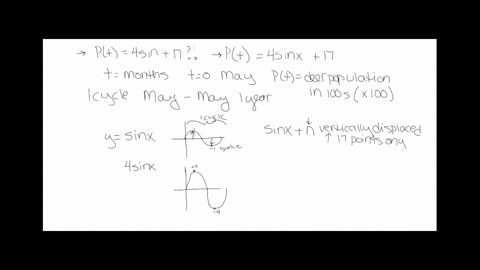 → P(t) = 4sin + 17 ?? → P(t) = 4sinx + 17
t = months t=0 May P(t) = deer population
in 100s (x100)
1 cycle May - May 1 year
1 cycle
y = sinx
sinx + n vertically displaced
↑ 17 points only
4sinx
+4
-4